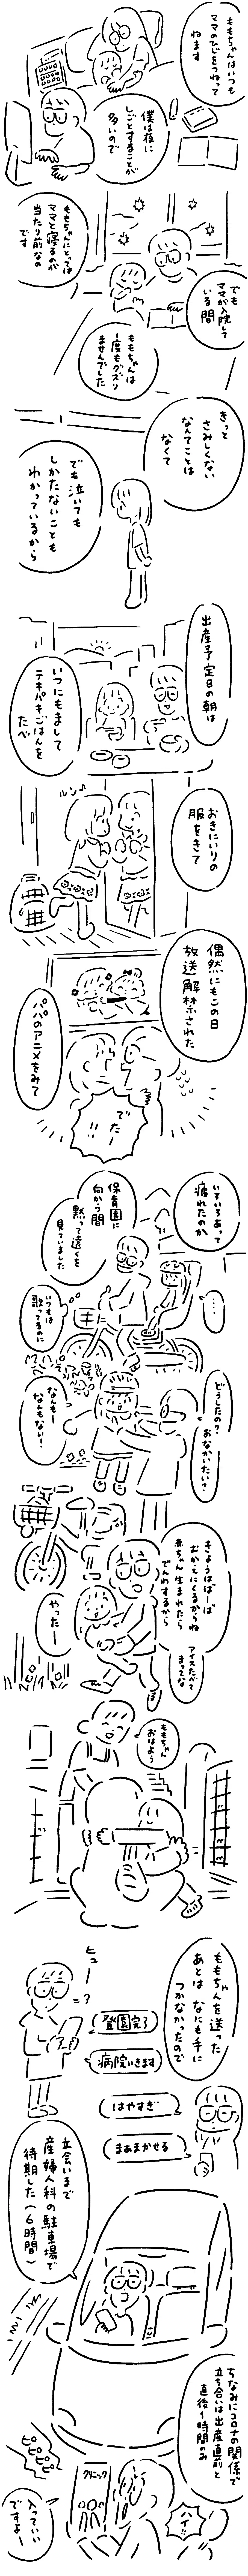 ももちゃんはいつも
ママのひじをつねって
ねます
僕は夜に
しごとすることが
多いので
ももちゃんにとっては
ママと寝るのが
当たり前なの
です
でも
ママが入院して
いる間
ももちゃんは
1度もグズり
ませんでした
きっと
さみしくない
なんてことは
なくて
でも泣いても
しかたないことも
わかっているから
出産予定日の朝は
いつにもまして
テキパキごはんを
たべ
おきにいりの
服をきて
ルン♪
偶然にもこの日
放送解禁された
パパのアニメをみて
でたー!!
いろいろあって
疲れたのか
保育園に
向かう間
黙って遠くを
見ていました
・・・・
いつもは
歌ってるのに
どうしたの?
おなかいたい?
なんもー
なんもない!
きょうはばーば
おむかえにくるからね
赤ちゃん生まれたら
でんわするから
アイスたべて
まってな
やったー
ももちゃん
おはよう
ももちゃんを送った
あとは なにも手に
つかなかったので
ヒュー
登園完了
病院いきます
はやすぎ
まあまかせる
立会いまで
産婦人科の駐車場で
待期した(6時間)
ちなみにコロナの関係で
立ち合いは出産直前と
直後1時間のみ
ピピピピ
クリニック
ハイ!!
入っていい
ですよー